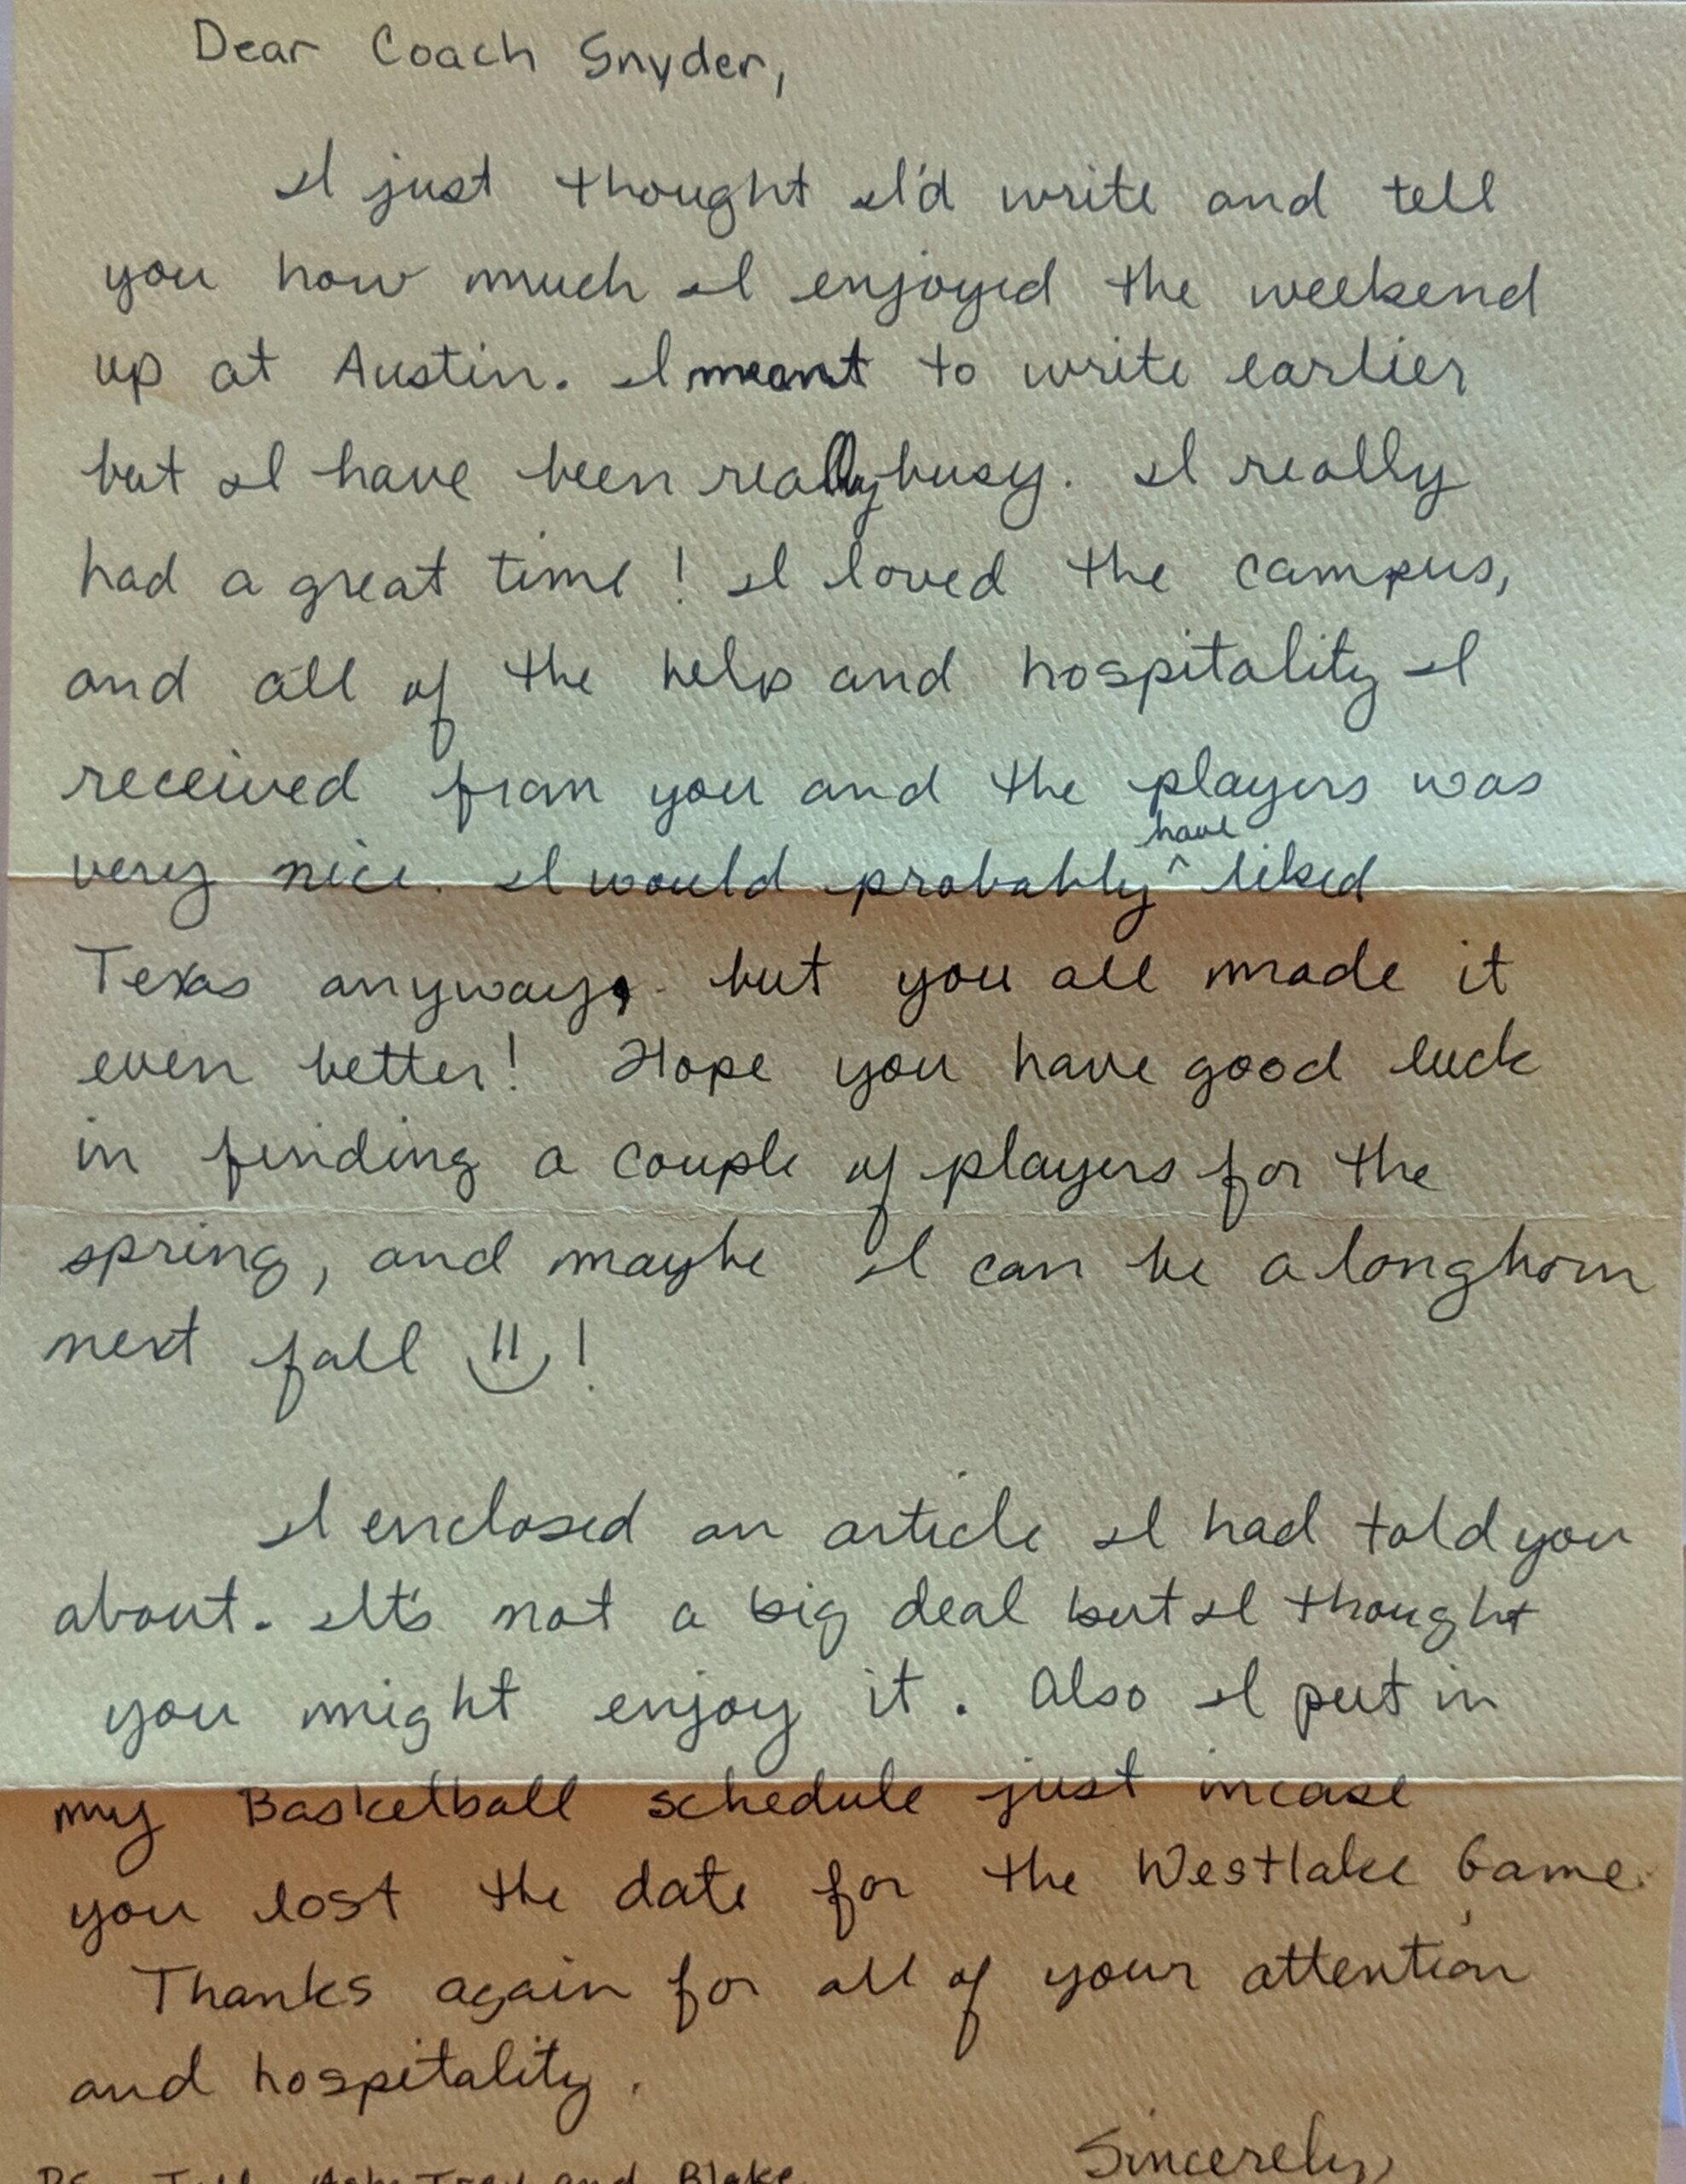 Dear Coach Snyder,
I just thought I'd write and tell
you how much I enjoyed the weekend
up at Austin. I meant to write earlier
but I have been really busy. I really
had a great time! I loved the campus,
and all of the help and hospitality I
received from you and the players was
very nice. I would probably ^have liked
Texas anyway, but you all made it
even better! Hope you have good luck
in finding a couple of players for the
spring, and maybe I can be a longhorn
next fall !
I enclosed an article I had told you
about. It's not a big deal but I thought
you might enjoy it. Also I put in
my Basketball schedule just incase
you lost the date for the Westlake Game.
Thanks again for all of your attention
and hospitality.
Sincerely,
PS. Tell Trey and Blake